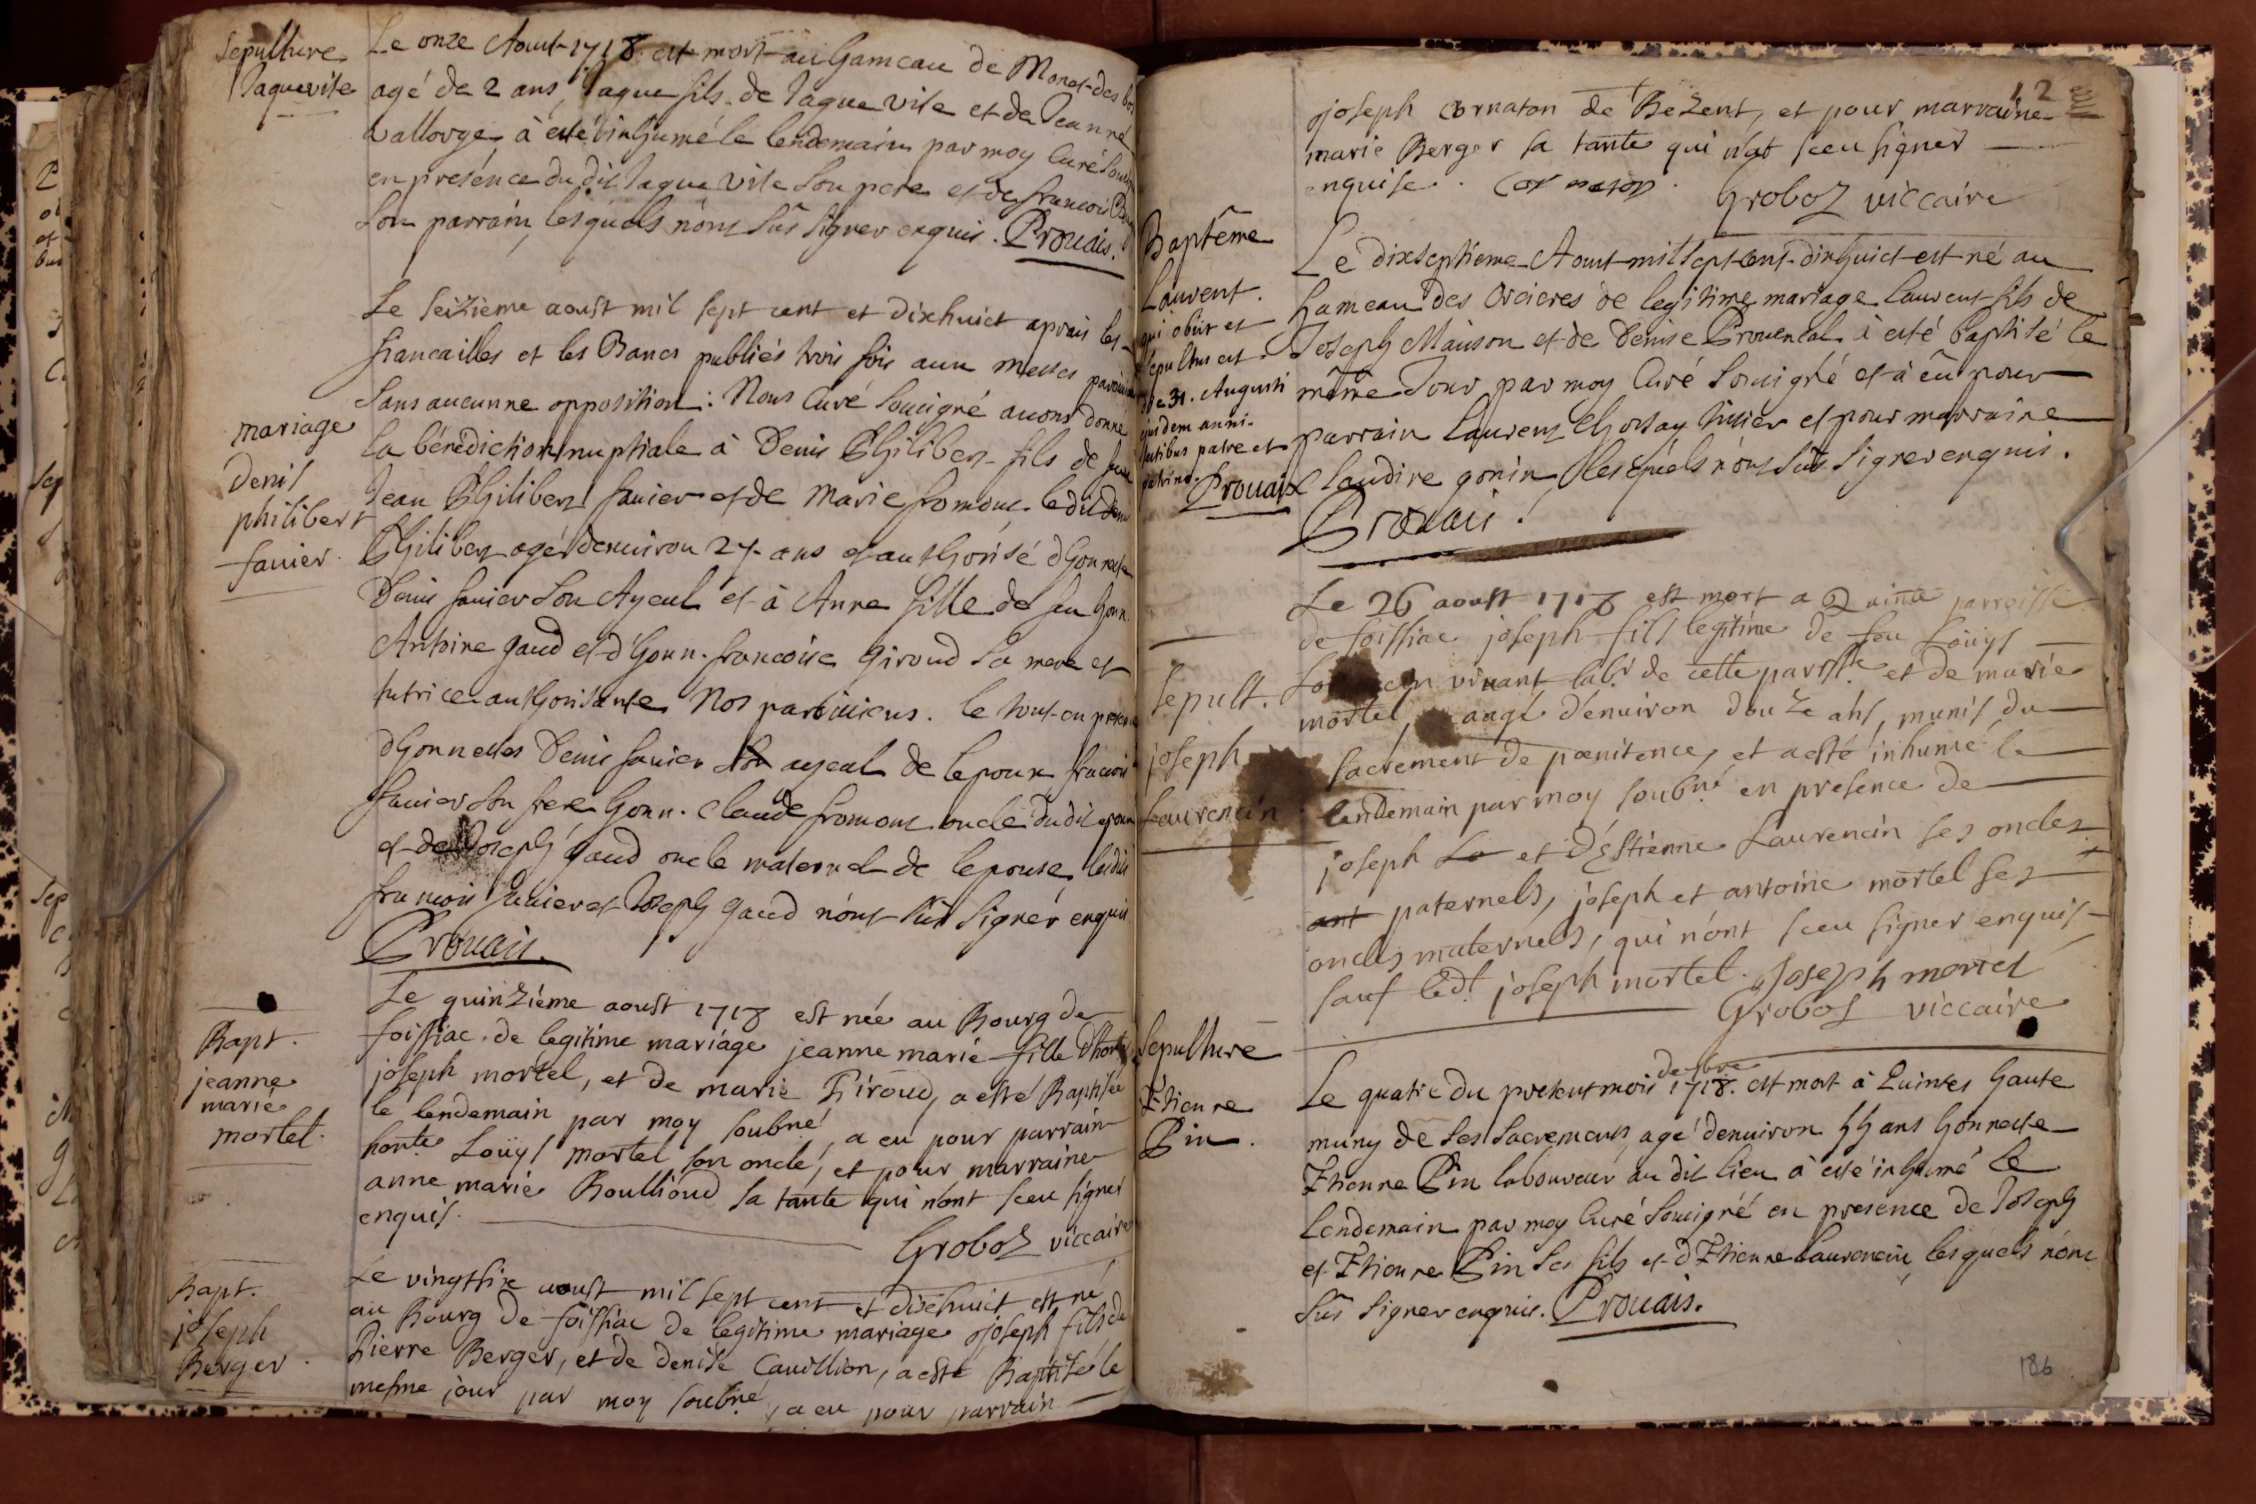 Sepulture
Jaque vite
Le onze Aoust 1718 est mort au hameau de Monet des bois
agé de 2 ans, Jaque fils de Jaque vite et de Jeanne
Vallorge, à esté inhumé le lendemain par moy Curé
en présence du dit Jaque Vite son pere et de francois
son parrain, lesquels n'ont sûs signer enquis. Prouais.
mariage
Denis
philibert
fauier.
Le seizieme aoust mil sept cent et dixhuict aprais les
fiancailles et les Bancs publiés trois fois aux messes
sans aucunne opposition: Nous Curé soucigné auons donné
la bénédiction nuptiale à Denis Philibert fils de feu
Jean Philibert fauier et de Marie fromont. le dit Denis
Philibert agé denuiron 27 ans et authorisé d'honneste
Denis fauier son Ayeul et à Anne fille de feu honn.
Antoine gaud et d'honn. francoise giroud sa mere et
tutrice authorisante Nos paroiciens. le tout en presence
d'honnestes Denis fauier son ayeul de lepoux, francois
fauier son frere honn. Claude fromont oncle du dit epoux
et de Joseph gaud oncle maternel de lepouse, lesdits
francois fauier et Joseph gaud n'ont sûs signer enquis
Prouais.
Bapt.
jeanne
marie
mortel.
Le quinziéme aoust 1718 est née au Bourg de
foissiac de legitime mariage jeanne marie fille d'honte
joseph mortel, et de marie Giroud, a esté Baptisée
le lendemain par moy soubné, a eu pour parrain
honte Loüys mortel son oncle, et pour marraine
anne marie Boullioud sa tante qui n'ont sceu signer
enquis.
Groboz viccaire
Bapt.
joseph
Berger.
Le vingtsix aoust mil sept cent et dixhuict est né
au Bourg de foissiac de legitime mariage joseph fils de
Pierre Berger, et de denise Cauillion, a esté Baptisé le
mesme jour par moy soubné, a eu pour parrain
12
joseph Cornaton de Bezent, et pour marraine
marie Berger sa tante qui n'at sceu signer
enquise. Cornaton.
Groboz viccaire
Baptême
Laurent.
qui obiit et
sepultus est
die 31. Augusti
ejusdem anni
patre et
patrino.
Prouais
Le dixseptieme Aoust mil sept cent dixhuict est né au
hameau des Orcieres de legitime mariage Laurent fils de
Joseph Mauson et de Denise Prouental à esté baptisé le
même Jour par moy Curé soucigné et à eû pour
parrain Laurent et pour marraine
Claudine gonin, lesquels n'ont sûs signer enquis.
Prouais.
Sepult.
joseph
Laurencin
Le 26 aoust 1718 est mort a Quinte parroisse
de foissiac joseph fils legitime de feu Loüys
viuant labr. de cette parsse. et de marie
mortel, aagé d'enuiron douze ans, munis du
sacrement de pœnitence, et a esté inhumé le
lendemain par moy soubné en presence de
joseph La et d'Estienne Laurencin ses oncles
ant paternels, joseph et antoine mortel ses
oncles maternels, qui n'ont sceu signer enquis
sauf ledt. joseph mortel. joseph mortel
Groboz viccaire
Sepulture
Etienne
Pin.
Le quatre du present mois 1718. est mort à Quintes haute
muny de ses sacremens, agé denuiron ans honneste
Etienne Pin laboureur au dit lieu à esté inhumé le
Lendemain par moy Curé soucigné en presence de Joseph
et Etienne Pin ses fils et d'Etienne Laurencin, lesquels n'ont
sûs signer enquis. Prouais.
186